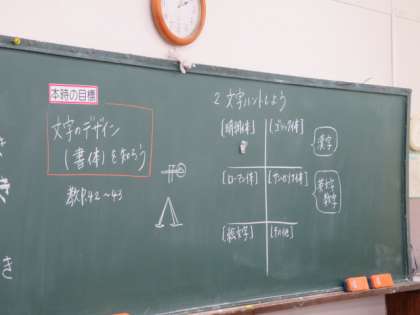 本時の目標
文字のデザイン
(書体)を知ろう
教P.42~43
2 文字ハントしよう
[明朝体] [ゴシック体]
漢字
[ローマン体] [サンセリフ体]
英文字
数字
[絵文字] [その他]
き